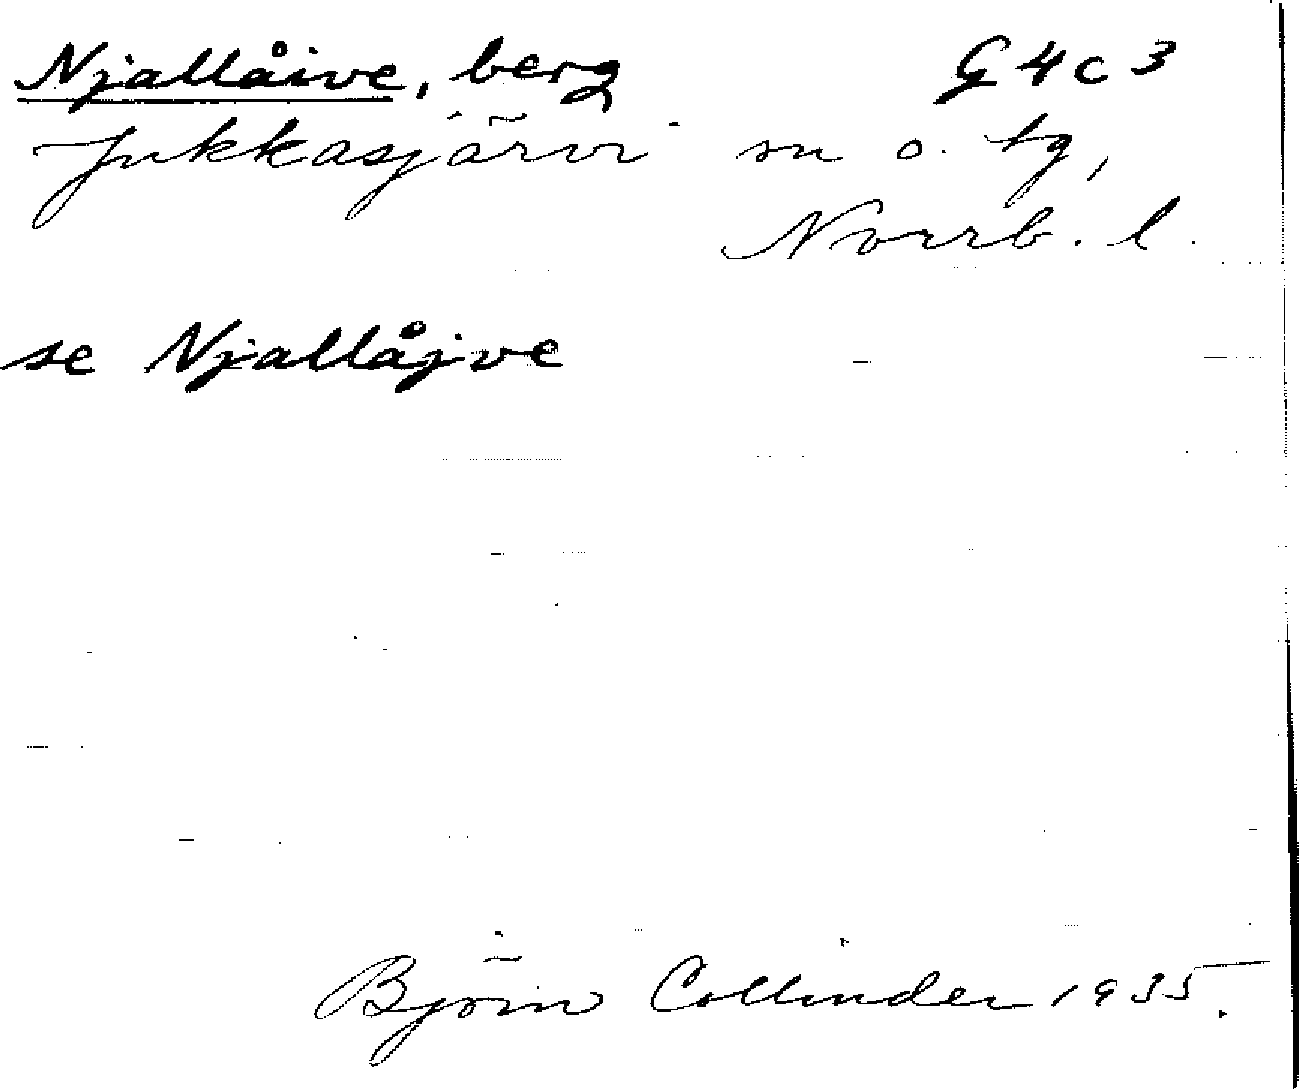 Njallåive, berg G 4 c 3
Jukkasjärvi sn o. tg,
Norrb. l.
se Njallåjve
Björn Collinder 1935.